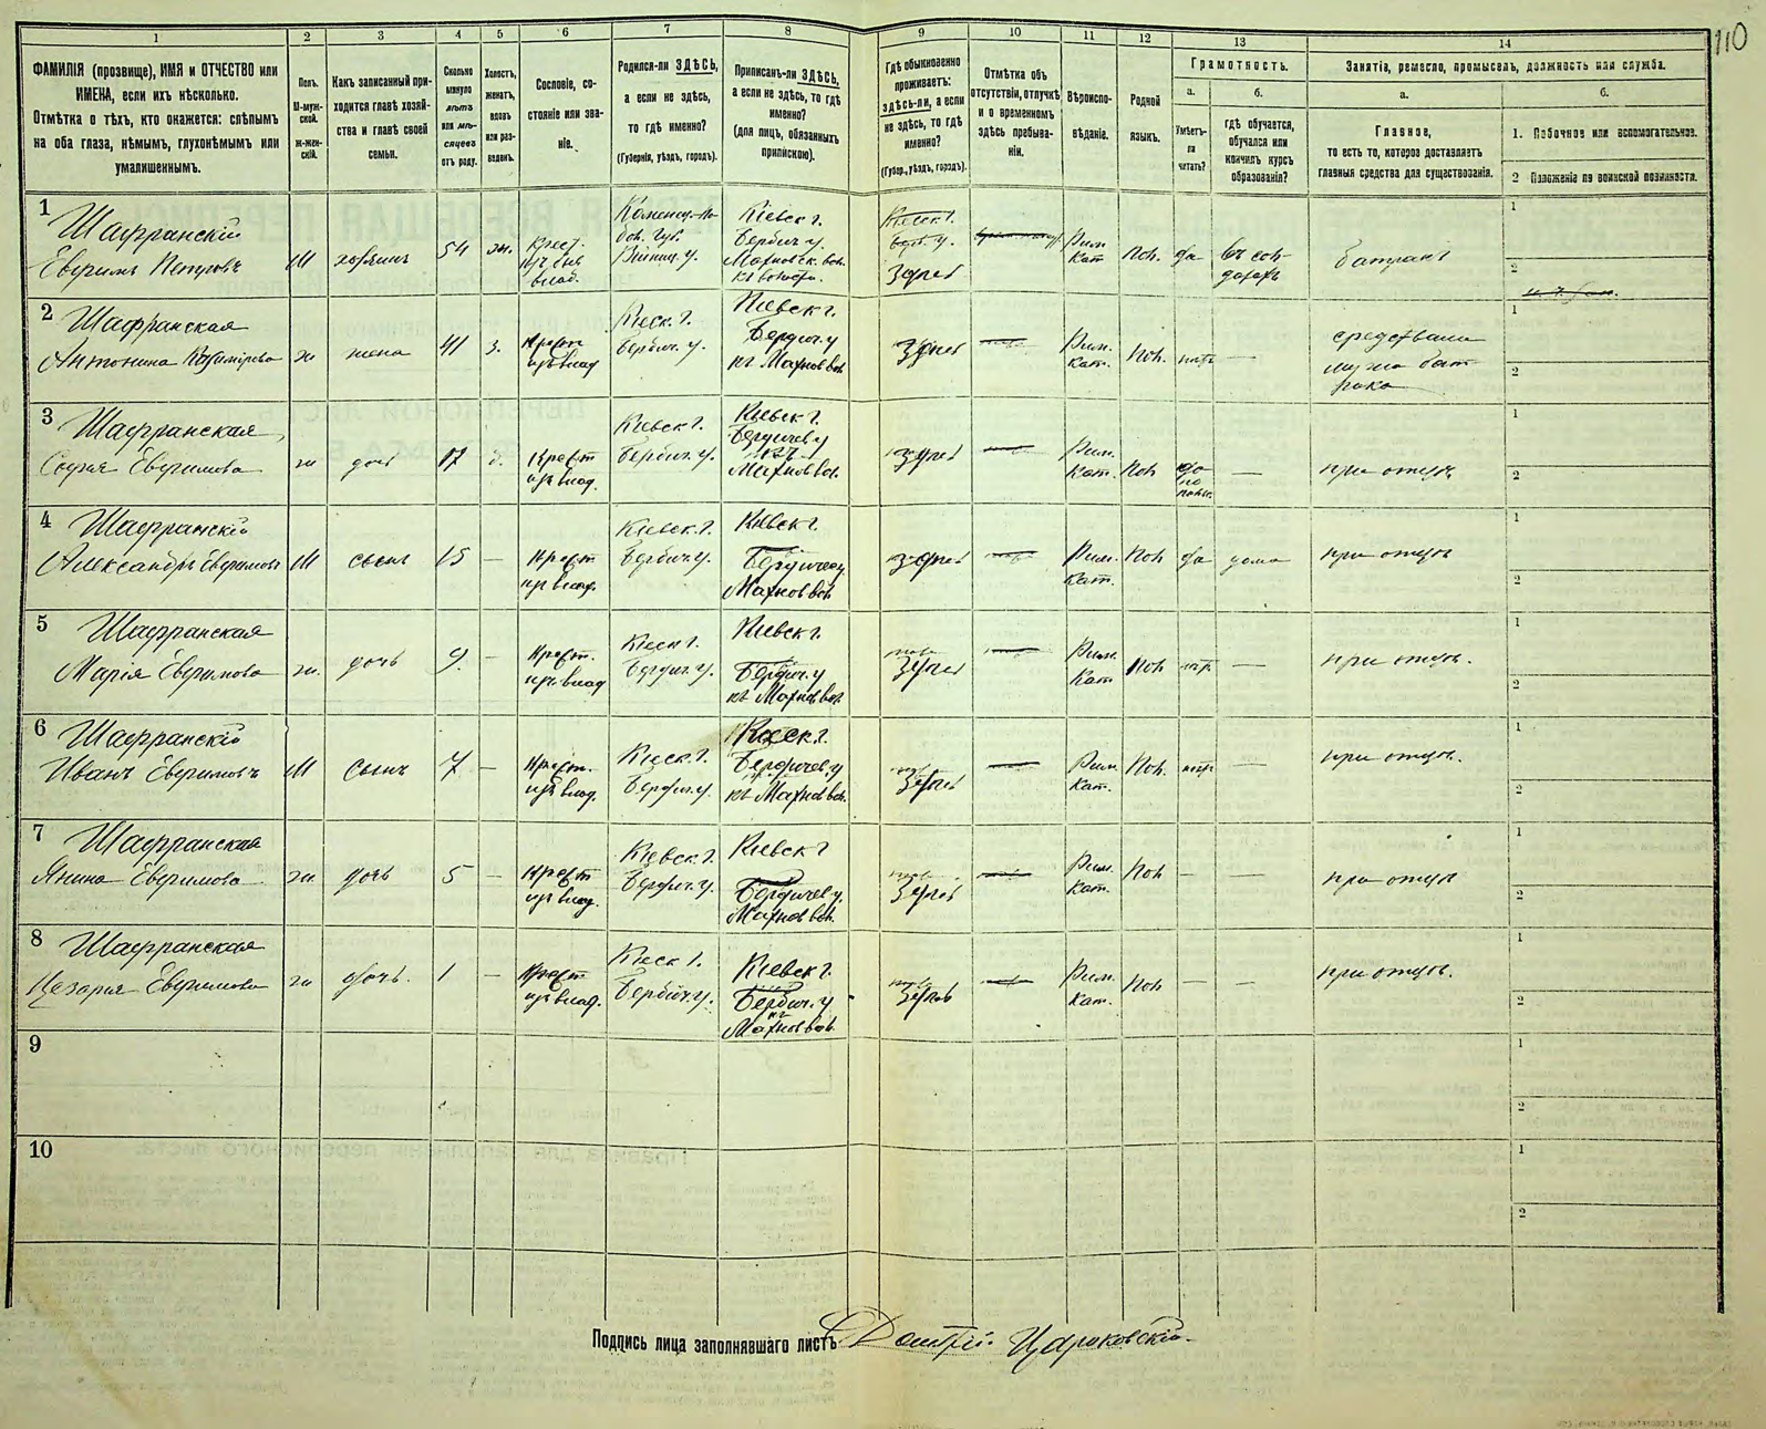 110
1 2 3 4 5 6 7 8 9 10 11 12 13 14
ФАМИЛІЯ (прозвище), ИМЯ и ОТЧЕСТВО или
ИМЕНА, если ихъ нѣсколько.
Отмѣтка о тѣхъ, кто окажется: слѣпымъ
на оба глаза, нѣмымъ, глухонѣмымъ или
умалишеннымъ.
Полъ.
М-муж-
ской.
ж-жен-
скій.
Какъ записанный при-
ходится главѣ хозяй-
ства и главѣ своей
семьи.
Сколько
минуло
лѣтъ
или мѣ-
сяцевъ
отъ роду.
Холостъ,
женатъ,
вдовъ
или раз-
веденъ.
Сословіе, со-
стояніе или зва-
ніе.
Родился-ли ЗДѢСЬ,
а если не здѣсь,
то гдѣ именно?
(Губернія, уѣздъ, городъ).
Приписанъ-ли ЗДѢСЬ,
а если не здѣсь, то гдѣ
именно?
(для лицъ, обязанныхъ
припискою).
Гдѣ обыкновенно
проживаетъ:
здѣсь-ли, а если
не здѣсь, то гдѣ
именно?
(Губер., уѣздъ, городъ).
Отмѣтка объ
отсутствіи, отлучкѣ
и о временномъ
здѣсь пребыва-
ніи.
Вѣроиспо-
вѣданіе.
Родной
языкъ.
Грамотность.
а.
Умѣетъ-
ли
читать?
б.
гдѣ обучается,
обучался или
кончилъ курсъ
образованія?
Занятіе, ремесло, промыселъ, должность или служба.
а.
Главное,
то есть то, которое доставляетъ
главныя средства для существованія.
б.
1. Побочное или вспомогательное.
2 Положеніе по воинской повинности.
1
Шафранскій
Евфимъ Петровъ
М
хозяинъ
54
жн.
Крест.
изъ
влад.
Винниц. у.
Кіевск г.
Бердич у.
Махновск. вол.
Кіевск г.
Берд. у.
здѣсь
Рим.
Кат
Пол.
да
въ сол-
датахъ
батракъ
1
2
2
Шафранская
Антонина Казимірова
ж
жена
41
з.
Крест
изъ влад
Кіевск. г.
Бердич. у.
Кіевск г.
Бердич. у
къ Махнов вол
здѣсь
Рим.
Кат.
Пол.
нѣтъ
—
средствами
мужа бат
рака
1
2
3
Шафранская
Софія Евфимова
ж
дочь
17
д.
Крест
изъ влад.
Кіевск г.
Бердич. у.
Кіевск г.
Бердичев у
къ
Махнов вол.
здѣсь
Рим.
Кат.
Пол
да
по
польс.
—
при отцѣ
1
2
4
Шафранскій
Александръ Евфимовъ
М
сынъ
15
—
Крест
изъ влад.
Кіевск. г.
Бердич. у.
Кіевск г.
Бердичев у
Махнов вол
здѣсь
Рим.
Кат.
Пол
да
дома
при отцѣ
1
2
5
Шафранская
Марія Евфимова
ж.
дочь
9.
—
Крест.
изъ влад
Кіевск г.
Бердич. у.
Кіевск г.
Бердич. у
къ Махнов вол.
здѣсь
Рим.
Кат
Пол
нѣтъ
—
при отцѣ.
1
2
6
Шафранскій
Иванъ Евфимовъ
М
Сынъ
7
—
Крест.
изъ влад.
Кіевск. г.
Бердич. у.
Кіевск. г.
Бердичев. у
къ Махнов вол.
здѣсь
Рим.
Кат.
Пол.
нѣтъ
—
при отцѣ.
1
2
7
Шафранская
Янина Евфимова
ж.
дочь
5
—
Крест
изъ влад.
Кіевск. г.
Бердич. у.
Кіевск г
Бердичев у.
Махнов вол.
здѣсь
Рим.
Кат.
Пол
—
—
при отцѣ
1
2
8
Шафранская
Цезарія Евфимова
ж
дочь.
1
—
Крест
изъ влад.
Кіевск г.
Бердич. у.
Кіевск г.
Бердич. у
къ
Махнов вол.
здѣсь
Рим.
Кат.
Пол
—
—
при отцѣ.
1
2
9
1
2
10
1
2
Подпись лица заполнявшаго листъ